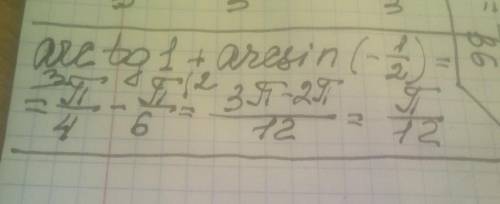 arctg 1 + arcsin (-1/2) =
= ³π/4 - π/6 ⁽² = (3π-2π)/12 = π/12